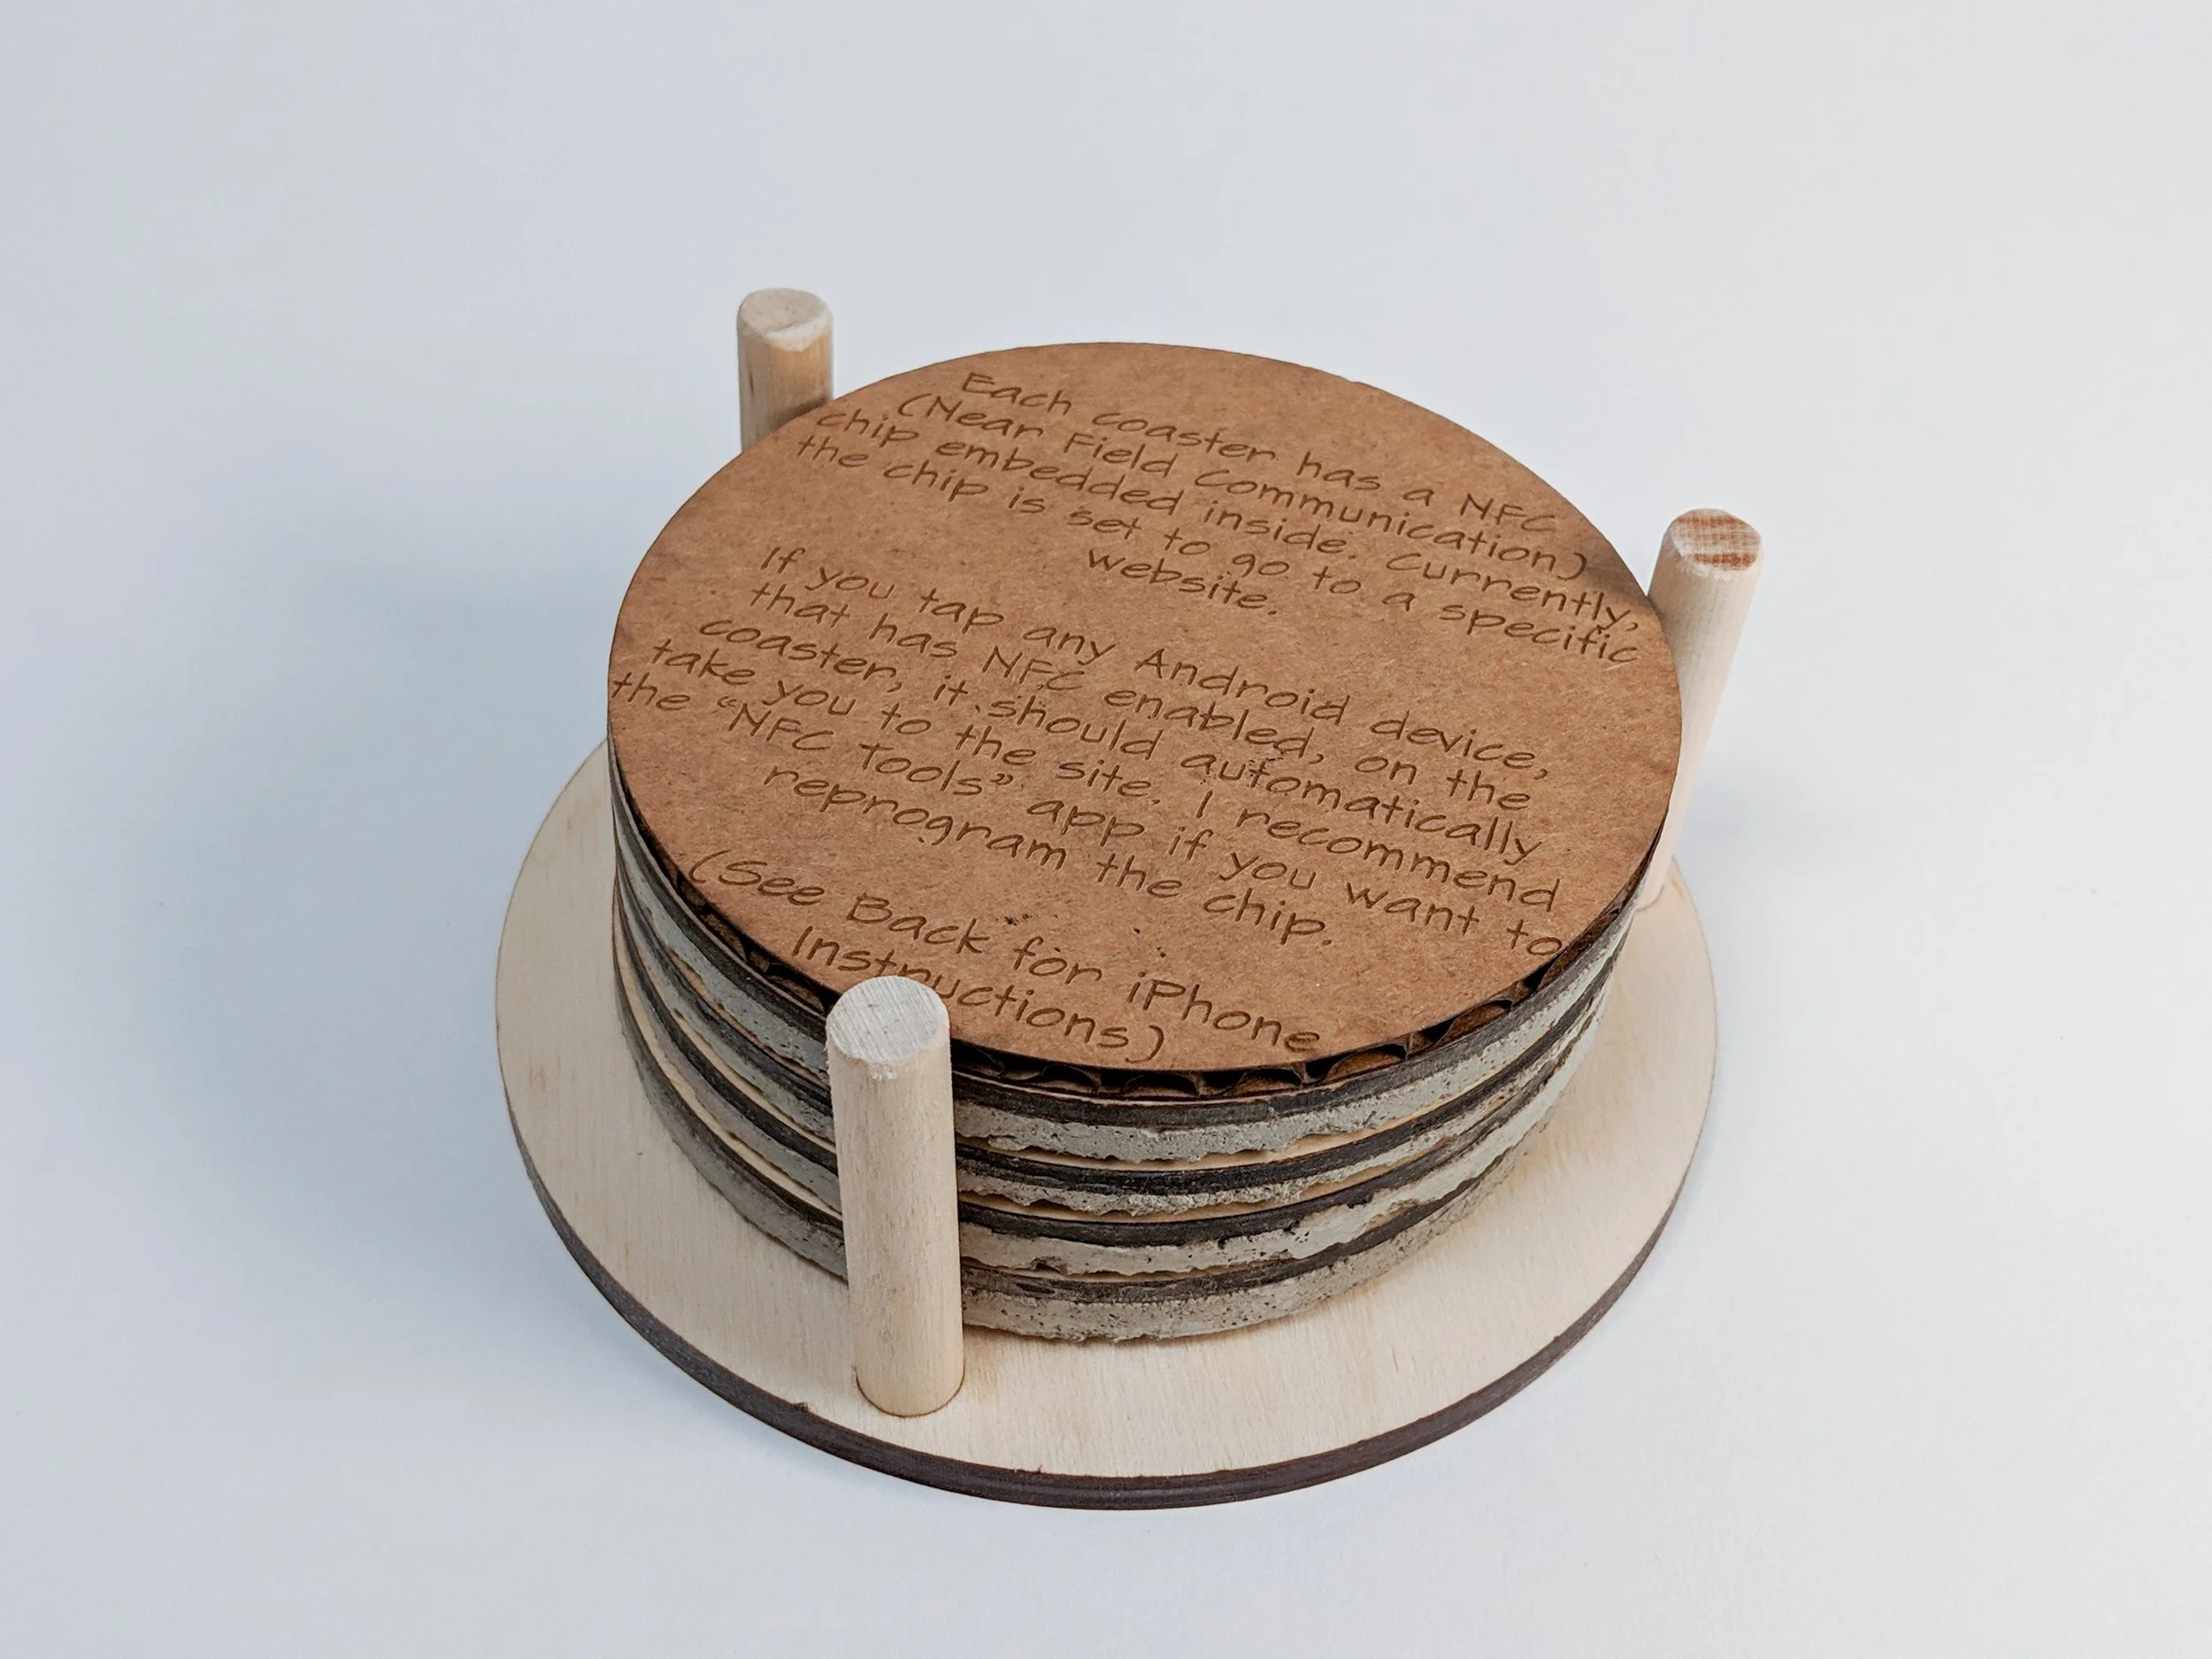 Each coaster has a NFC
(Near Field Communication)
chip embedded inside. Currently,
the chip is set to go to a specific
website.
If you tap any Android device,
that has NFC enabled, on the
coaster, it should automatically
take you to the site. I recommend
the “NFC Tools” app if you want to
reprogram the chip.
(See Back for iPhone
Instructions)